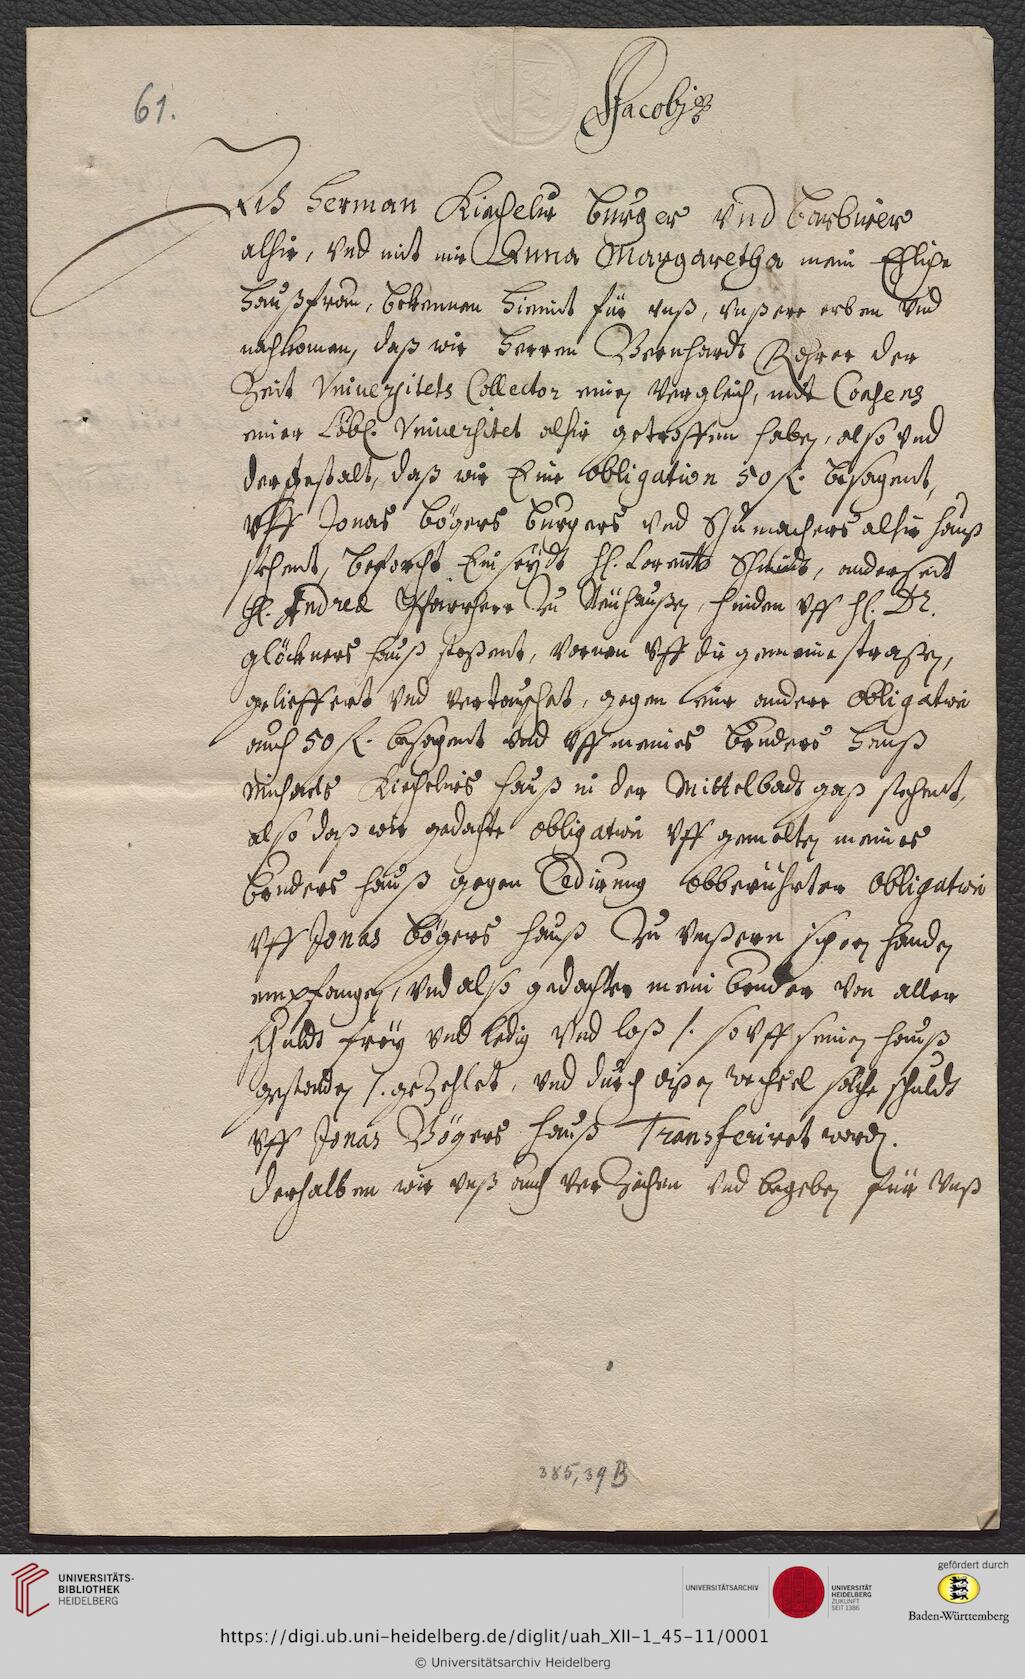 61.
Jacobj
Ich Herman Kirchelin Burger Vnd Barbirer
alhir, vnd mit mir Anna Margaretha mein Ehliche
Haußfraw, bekennen hiemit für vnß, vnßere erben vnd
nachkomen, daß wir Herren Bernhardt Rohrer der
Zeit Vniuersitets Collector einen Vergleich, mit Consens
einer Löbl. Vniuersitet alhir getroffen haben, also vnd
dergestalt, daß wir Eine obligation 50 fl. besagent,
vff Jonas Bögers burgers vnd Schumachers alhir hauß
stehent, beforcht Einseydt hl. Lorentz Schmidt, anderseit
hl. Andrea Pfarrherr zu Neühaußen, hinden vff hl. Dr.
glöckners hauß stoßent, vornen vff die gemeine straßen,
gelieffert vnd vertauschet, gegen eine andere obligation
auch 50 fl. besagent vnd vff meines bruders Hanß
Michaels Kirchelins hauß in der Mittelbadt gaß stehent,
also daß wir gedachte obligation vff gemelten meines
bruders hauß gegen Cedirung obberührter obligation
vff Jonas Bögers hauß zu vnßern sichern handen
empfangen, vnd also gedachter mein bruder von aller
schuldt frey vnd ledig vnd loß /. so vff seinen hauß
gestanden /. gezehlet, vnd durch dißen wechsel solche schuldt
vff Jonas Bögers hauß Transferiret worden.
Derhalben wir vnß auch verzeihen vnd begeben für vnß
385,39 B
UNIVERSITÄTS-
BIBLIOTHEK
HEIDELBERG
UNIVERSITÄTSARCHIV
UNIVERSITÄT
HEIDELBERG
ZUKUNFT
SEIT 1386
gefördert durch
Baden-Württemberg
https://digi.ub.uni-heidelberg.de/diglit/uah_XII-1_45-11/0001
© Universitätsarchiv Heidelberg